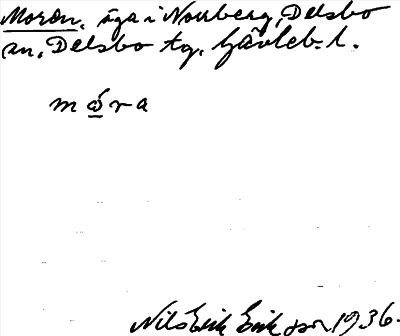 Moron, äga i Norrberg, Delsbo
sn, Delsbo tg, Gävleb. l.
m ó̲ r a
Nils Erik Eriksson 1936.